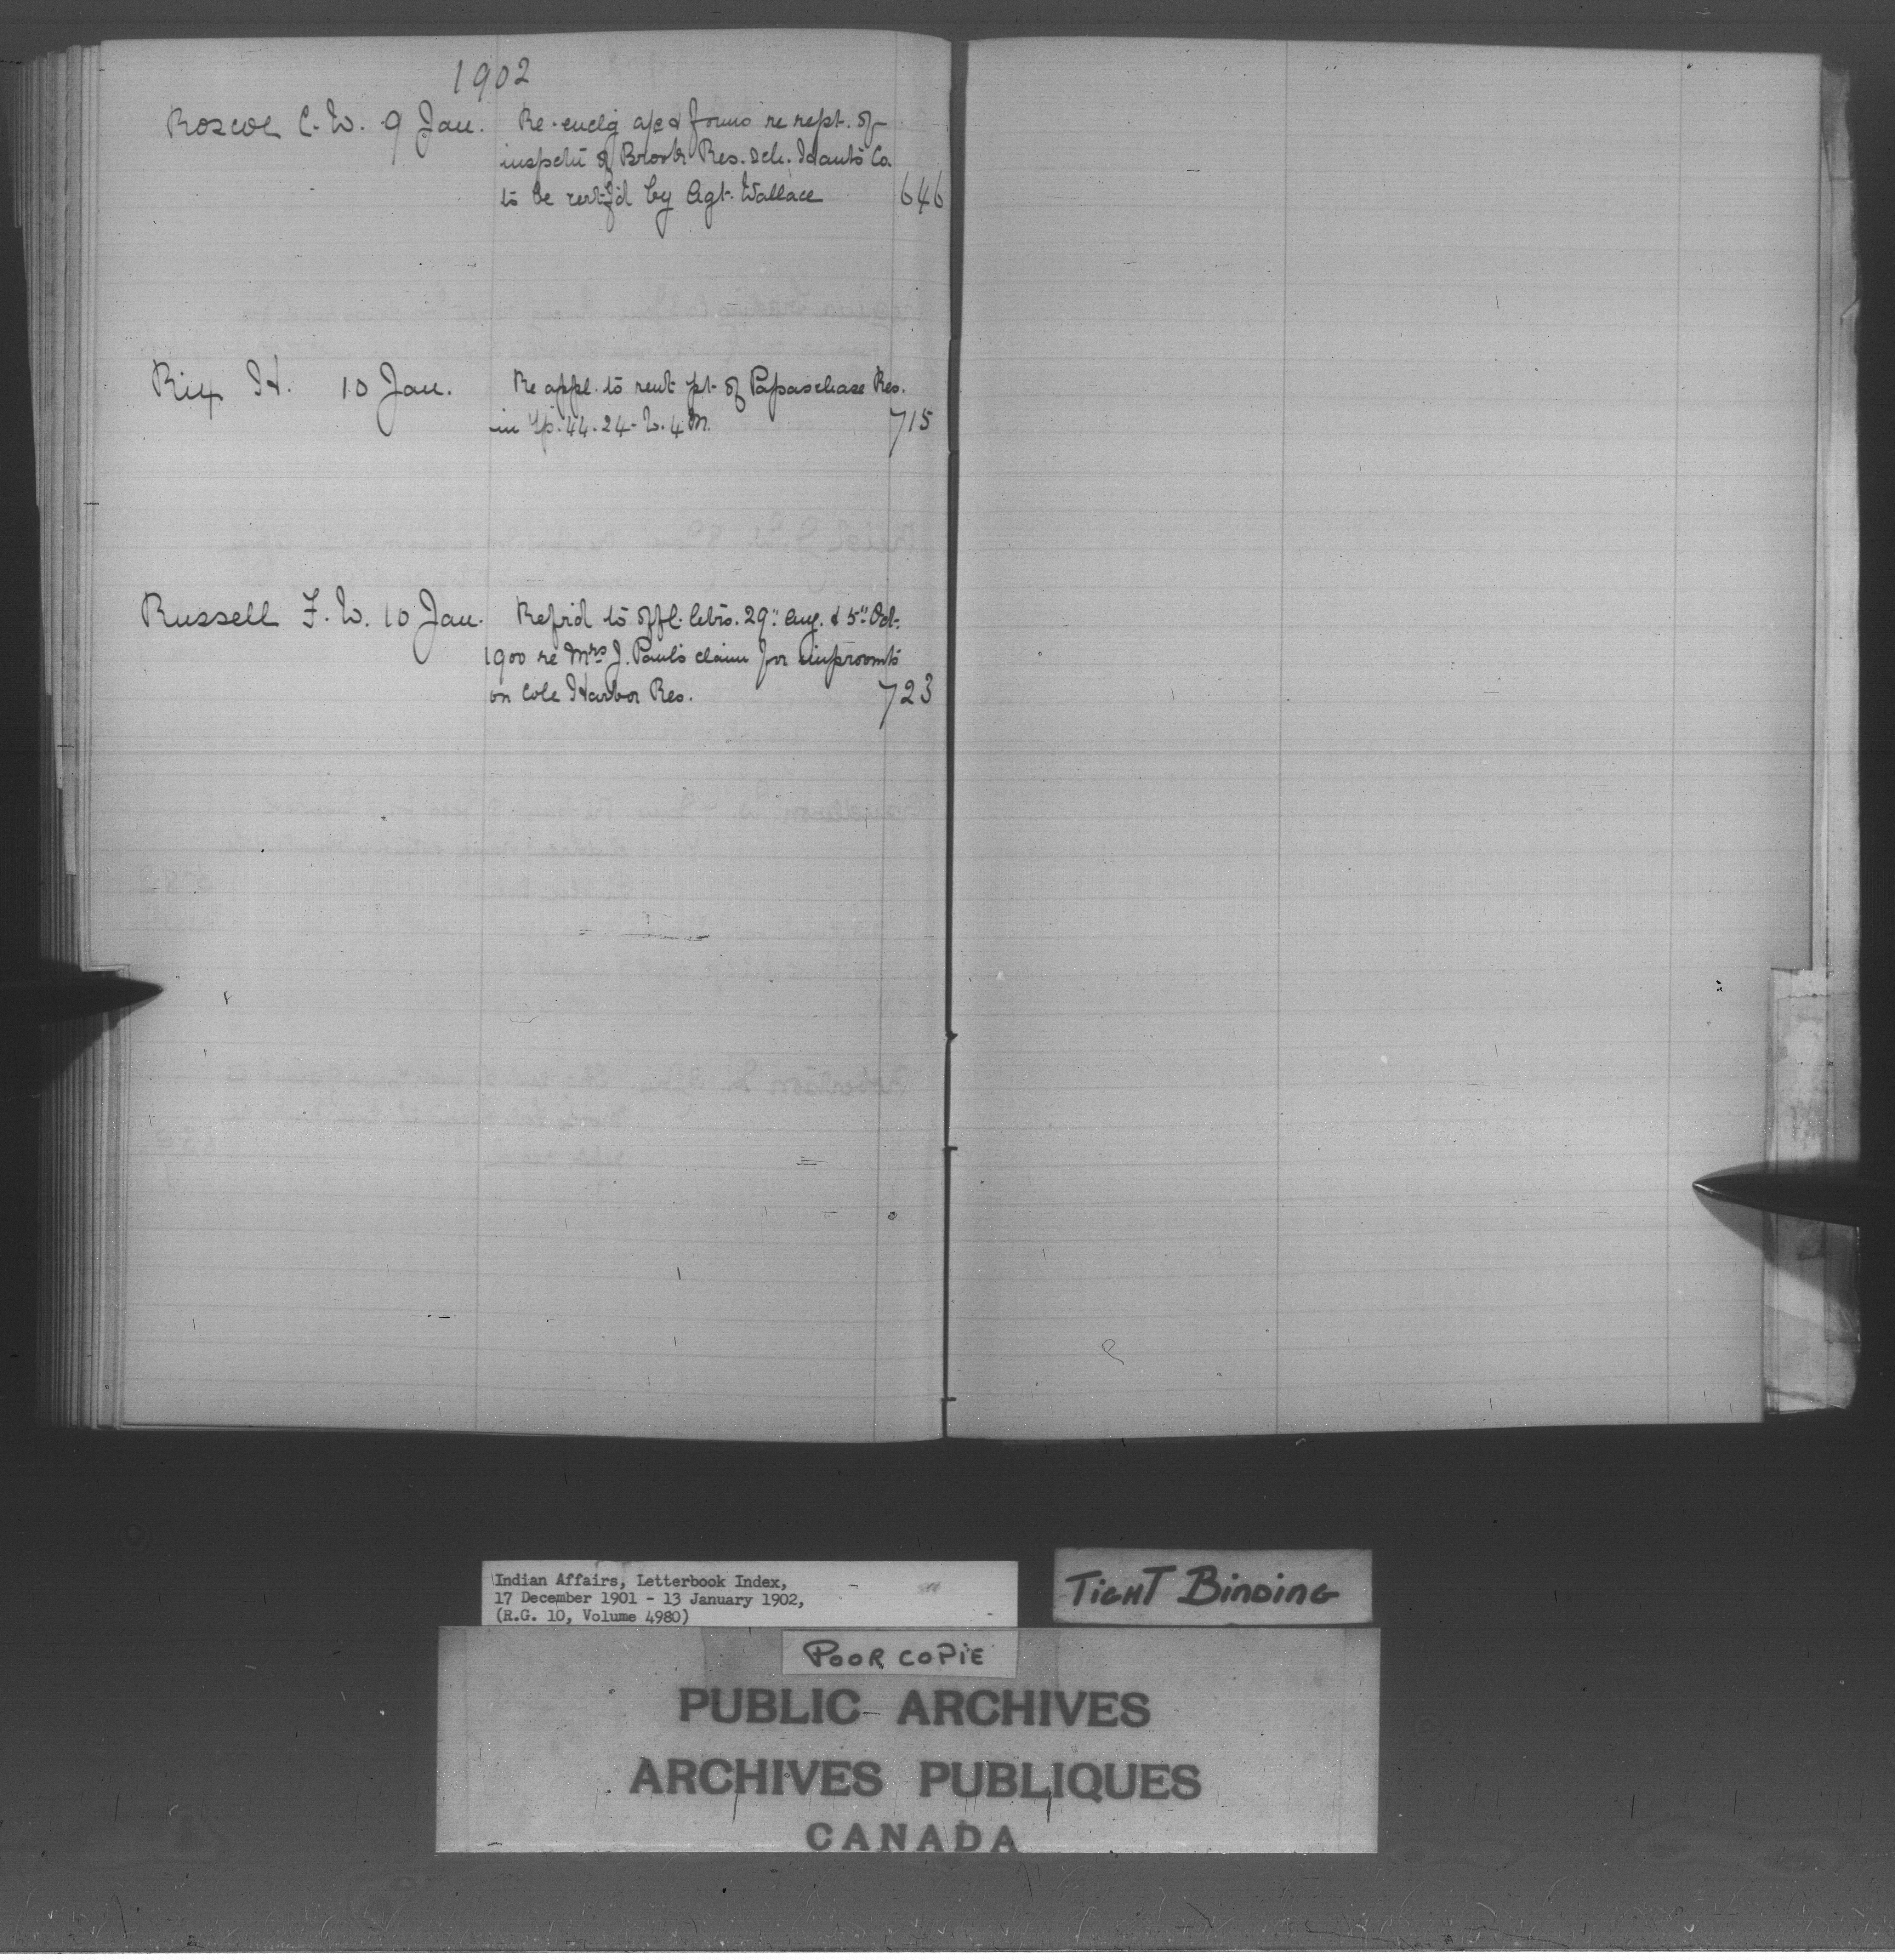 1902
Roscoe C. W. 9 Jan. Re-enclg a/c & forms re rept. of
inspctn of Brook Res. Sch. Hants Co.
to be certf'd by Agt. Wallace 646
Rix H. 10 Jan. Re appl. to rent pt. of Papaschase Res.
in Tp. 44. 24 - W. 4 M. 715
Russell F. W. 10 Jan. Refrd to offl. letrs. 29" Aug. & 5" Oct.
1900 re Mrs J. Paul's claim for improvmts
on Cole Harbor Res. 723
Indian Affairs, Letterbook Index,
17 December 1901 - 13 January 1902,
(R.G. 10, Volume 4980)
TIGHT BINDING
POOR COPIE
PUBLIC ARCHIVES
ARCHIVES PUBLIQUES
CANADA